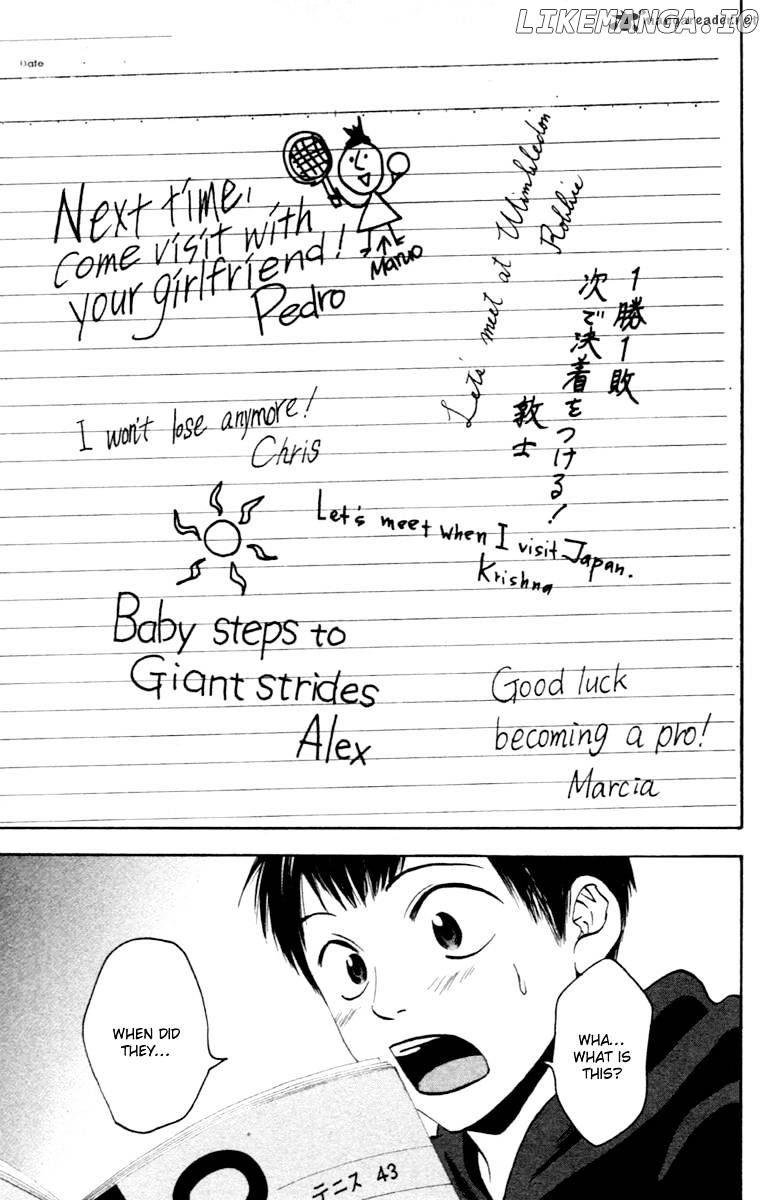 LIKEMANGA.IO
mangareader.net
Date
Next time,
come visit with
your girlfriend!
Pedro
Maruo
Lets' meet at Wimbledon
Robbie
1勝1敗
次で決着をつける!
敦士
I won't lose anymore!
Chris
Let's meet when I visit Japan.
Krishna
Baby steps to
Giant strides
Alex
Good luck
becoming a pro!
Marcia
WHA...
WHAT IS
THIS?
WHEN DID
THEY...
テニス 43